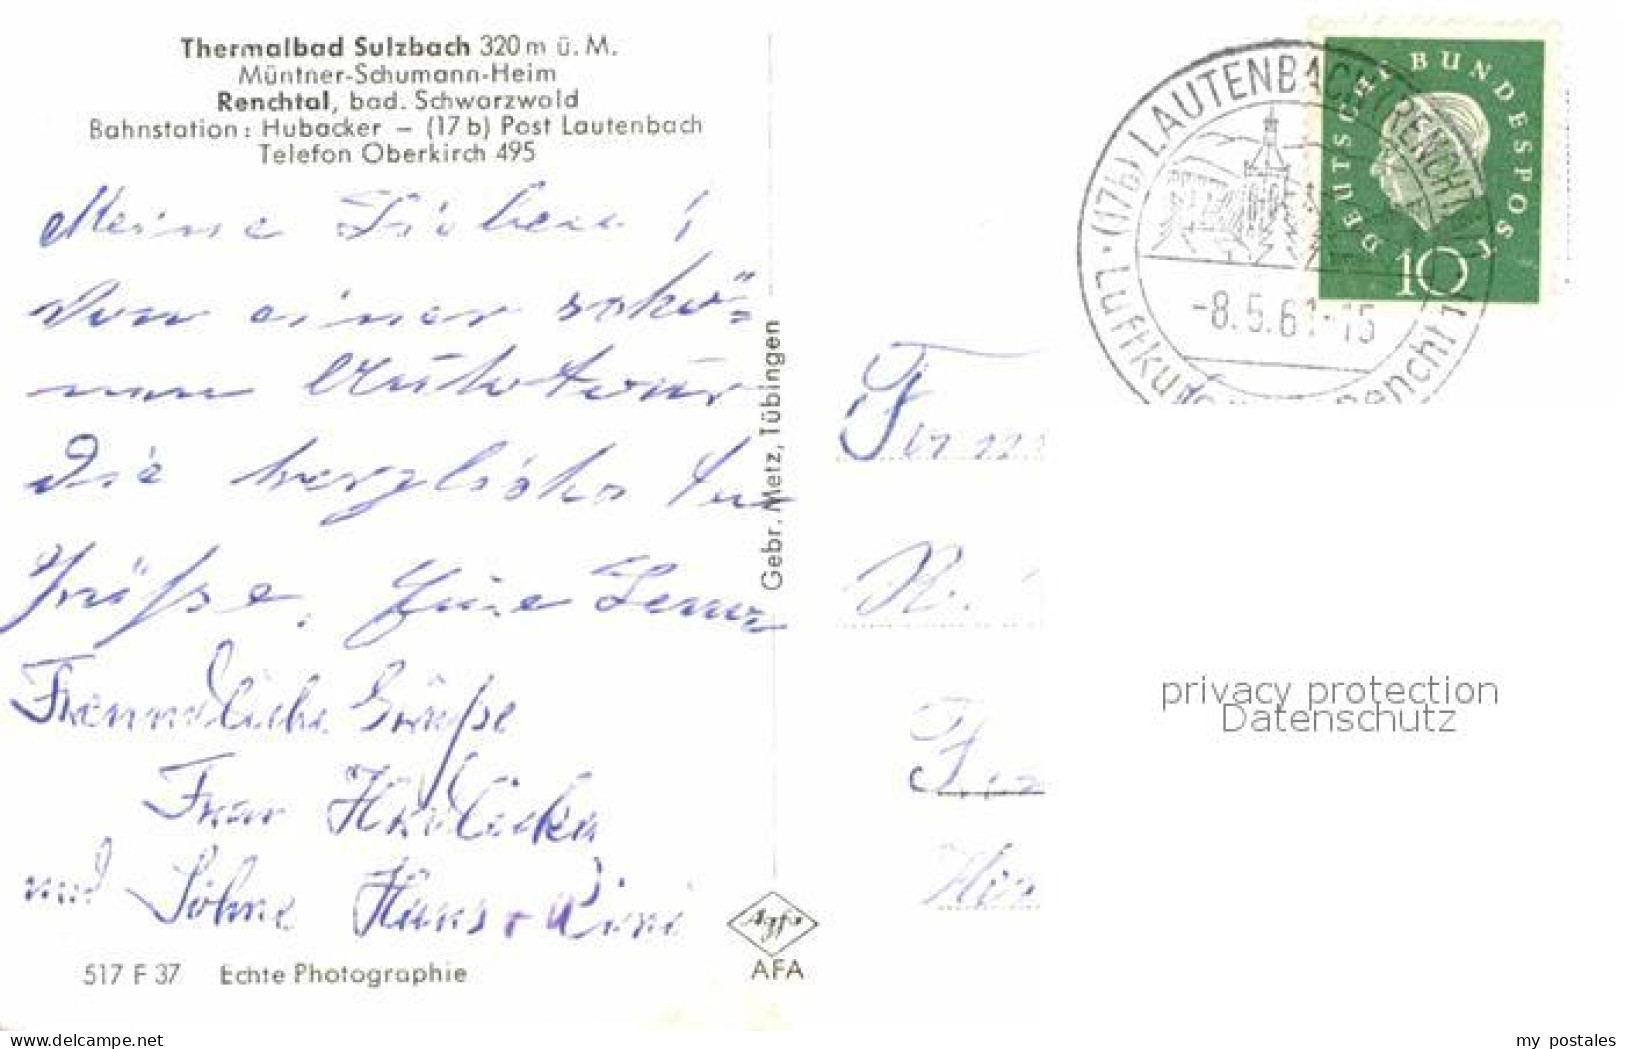 Thermalbad Sulzbach 320 m ü. M.
Müntner-Schumann-Heim
Renchtal, bad. Schwarzwald
Bahnstation: Hubacker – (17 b) Post Lautenbach
Telefon Oberkirch 495
Meine Lieben!
Von einer schö=
nen Autotour
Die herzlichsten
Grüße. Eure
Freundliche Grüße
Frau
und Söhne Hans +
517 F 37 Echte Photographie
Agfa
AFA
Gebr. Metz, Tübingen
(17b) LAUTENBACH (RENCHTAL)
Luftkurort
-8.5.61-15
DEUTSCHE BUNDESPOST
10
privacy protection
Datenschutz
www.delcampe.net
my_postales